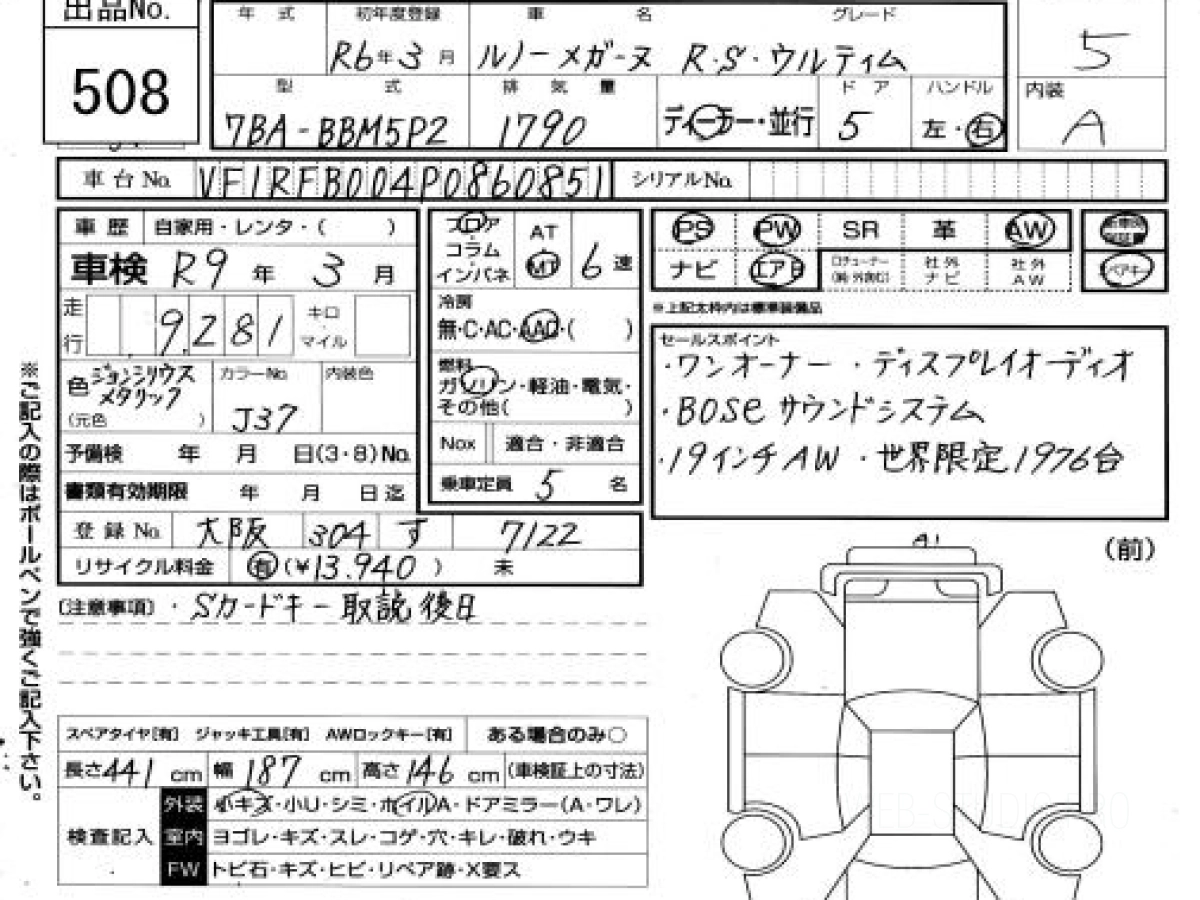 出品No.
508
年 式 初年度登録 車 名 グレード
R6年3月 ルノーメガーヌ R.S.ウルティム
5
型 式 排 気 量 ドア ハンドル
7BA-BBM5P2 1790 ディーラー・並行 5 左・右
内装
A
車台No. VF1RFB004P0860851 シリアルNo.
車 歴 自家用・レンタ・( )
車検 R9年 3月
走行 9,281 キロ マイル
色 ジョンシリウスメタリック
(元色 )
カラーNo. J37
内装色
予備検 年 月 日(3・8)No.
書類有効期限 年 月 日迄
登録No. 大阪 304 す 7122
リサイクル料金 有(¥13.940) 未
フロア
コラム
インパネ
AT
MT
6速
冷房
無・C・AC・AAC・( )
燃料
ガソリン・軽油・電気・
その他( )
Nox 適合・非適合
乗車定員 5 名
PS PW SR 革 AW
ナビ エアB 社外ナビ 社外AW
スペアキー
※上記太枠内は標準装備品
セールスポイント
・ワンオーナー ・ディスプレイオーディオ
・BOSEサウンドシステム
・19インチAW ・世界限定1976台
[注意事項] ・Sカードキー取説後日
A1
(前)
スペアタイヤ[有] ジャッキ工具[有] AWロックキー[有] ある場合のみ○
長さ441cm 幅187cm 高さ146cm (車検証上の寸法)
検査記入
外装 小キズ・小U・シミ・ホイルA・ドアミラー(A・ワレ)
室内 ヨゴレ・キズ・スレ・コゲ・穴・キレ・破れ・ウキ
FW トビ石・キズ・ヒビ・リペア跡・X要ス
※ご記入の際はボールペンで強くご記入下さい。